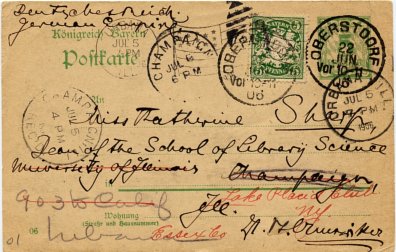 Deutsches Reich.
German Empire
Königreich Bayern
Postkarte
CHAMPAIGN
JUL 5
6 PM
OBERSTDORF
22
JUN.
Vor 10-11
06
URBANA, ILL.
JUL 5
PM
1906
CHAMPAIGN
JUL 5
4 PM
REC'D
An
Miss Katherine Sharp
Dean of the School of Library Science
University of Illinois
Champaign
Ill.
903 W Calif
Urbana
Lake Placid Club
NY
Essex Co
Wohnung
(Straße und Hausnummer)
06
01